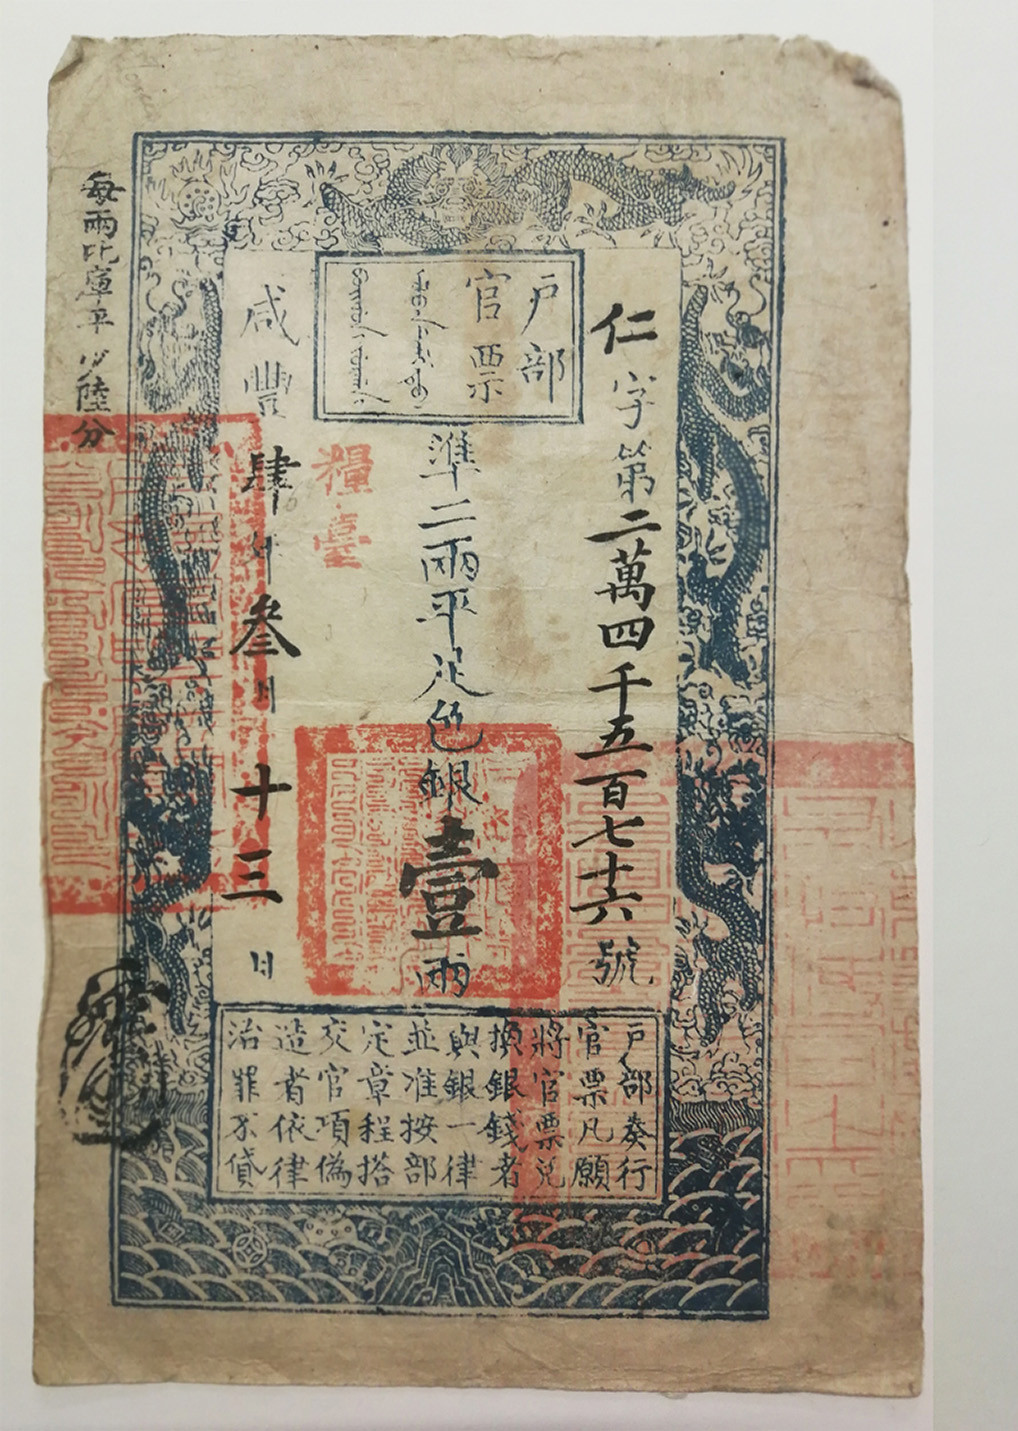 戶部
官票
仁字第二萬四千五百七十六號
準二兩平足色銀壹兩
糧臺
咸豐肆年叁月十三日
每兩比庫平少陸分
戶部奏行
官票凡願
將官票兌
換銀錢者
與銀一律
並准按部
定章程搭
交官項偽
造者依律
治罪不貸